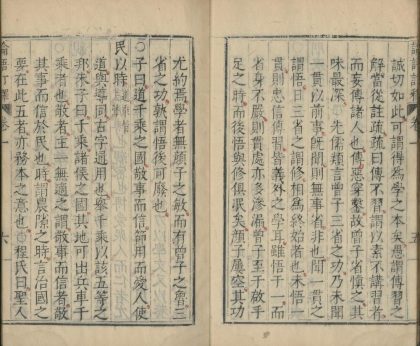 誠切如此可謂得為學之本矣愚謂傳習之
解當從註疏疏曰傳不習謂以素不講習者
而妄傳諸人也傳惡穿鑿故曾子省慎之其
味最深先儒類言曾子三省之功乃未聞
一貫以前事既聞則無事省非也聞一貫之
謂悟日三省之謂修相為終始者也未悟一
貫則忠信傳習皆義外之學耳雖悟于一而
省身不嚴則貫處亦多滲漏曾子至于啟手
足之時而後悟與修俱泯矣顏子屢空其功
尤約焉學者無顏子之敏而有曾子之魯三
省之功孰謂悟後可廢也
○子曰道千乘之國敬事而信節用而愛人使
民以時
道與導同古字通用也舉千乘以該五等之
邦朱子曰千乘諸侯之國其地可出兵車千
乘者也敬者主一無適之謂敬事而信者敬
其事而信於民也時謂農隙之時言治國之
要在此五者亦務本之意也程氏曰聖人
卷一
六